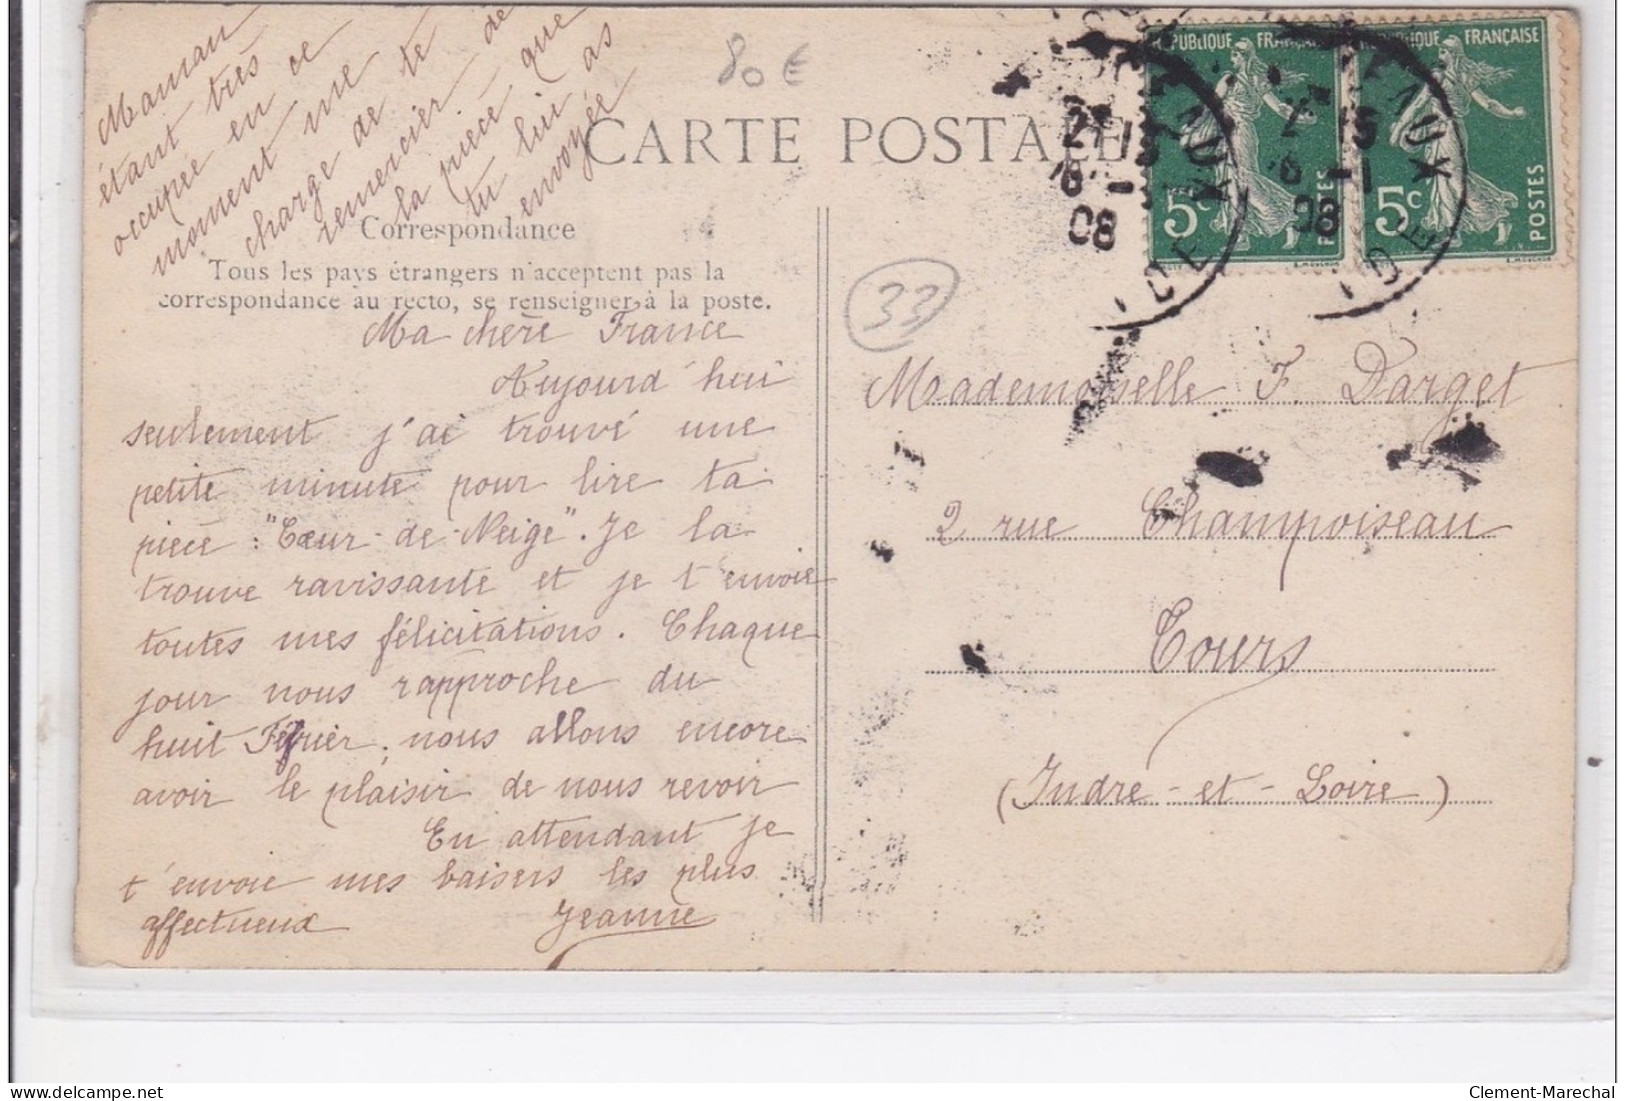 Maman
étant très
occupée en ce
moment me
charge de te
remercier de
la pièce que
tu lui as
envoyée
80 €
CARTE POSTALE
Correspondance
Tous les pays étrangers n'acceptent pas la
correspondance au recto, se renseigner à la poste.
Ma chère France
Aujourd'hui
seulement j'ai trouvé une
petite minute pour lire ta
pièce : "Cœur-de-Neige". Je la
trouve ravissante et je t'envoie
toutes mes félicitations. Chaque
jour nous rapproche du
huit Février, nous allons encore
avoir le plaisir de nous revoir
En attendant je
t'envoie mes baisers les plus
affectueux Jeanne
RÉPUBLIQUE FRANÇAISE
5c
POSTES
RÉPUBLIQUE FRANÇAISE
5c
POSTES
27
8 - 1
08
15
6 - 1
08
33
Mademoiselle F. Darget
2 rue Champoiseau
Tours
(Indre-et-Loire)
delcampe.net
Clement-Marechal